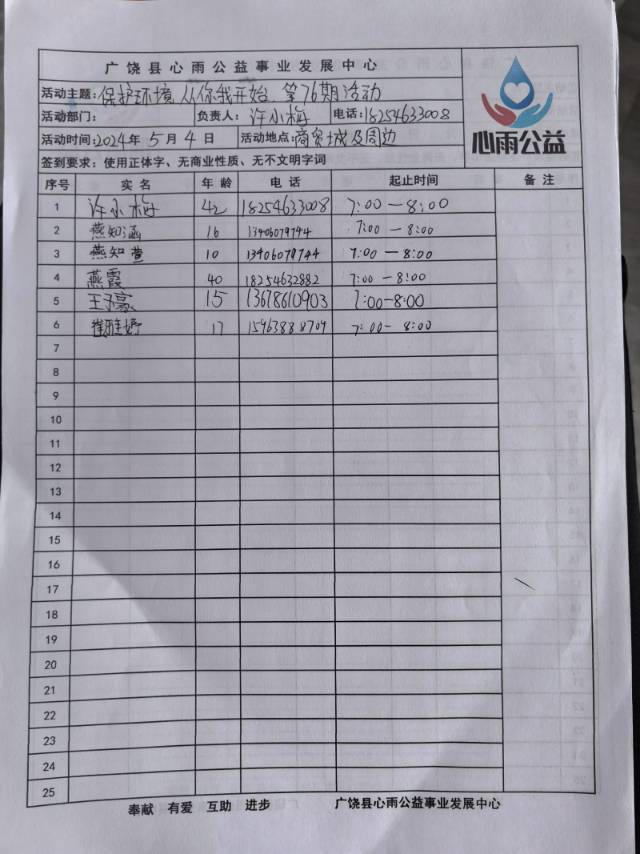 广饶县心雨公益事业发展中心
活动主题:保护环境,从你我开始、第76期活动
活动部门: 负责人:许小梅 电话:18254633008
活动时间:2024年5月4日 活动地点:商贸城及周边
心雨公益
签到要求:使用正体字、无商业性质、无不文明字词
序号 实名 年龄 电话 起止时间 备注
1 许小梅 42 18254633008 7:00—8:00
2 燕知涵 16 13406079744 7:00—8:00
3 燕知萱 10 13406079744 7:00—8:00
4 燕霞 40 18254632882 7:00—8:00
5 王子豪 15 13678610903 7:00-8:00
6 崔雅婷 17 7:00-8:00
7
8
9
10
11
12
13
14
15
16
17
18
19
20
21
22
23
24
25
奉献 有爱 互助 进步 广饶县心雨公益事业发展中心